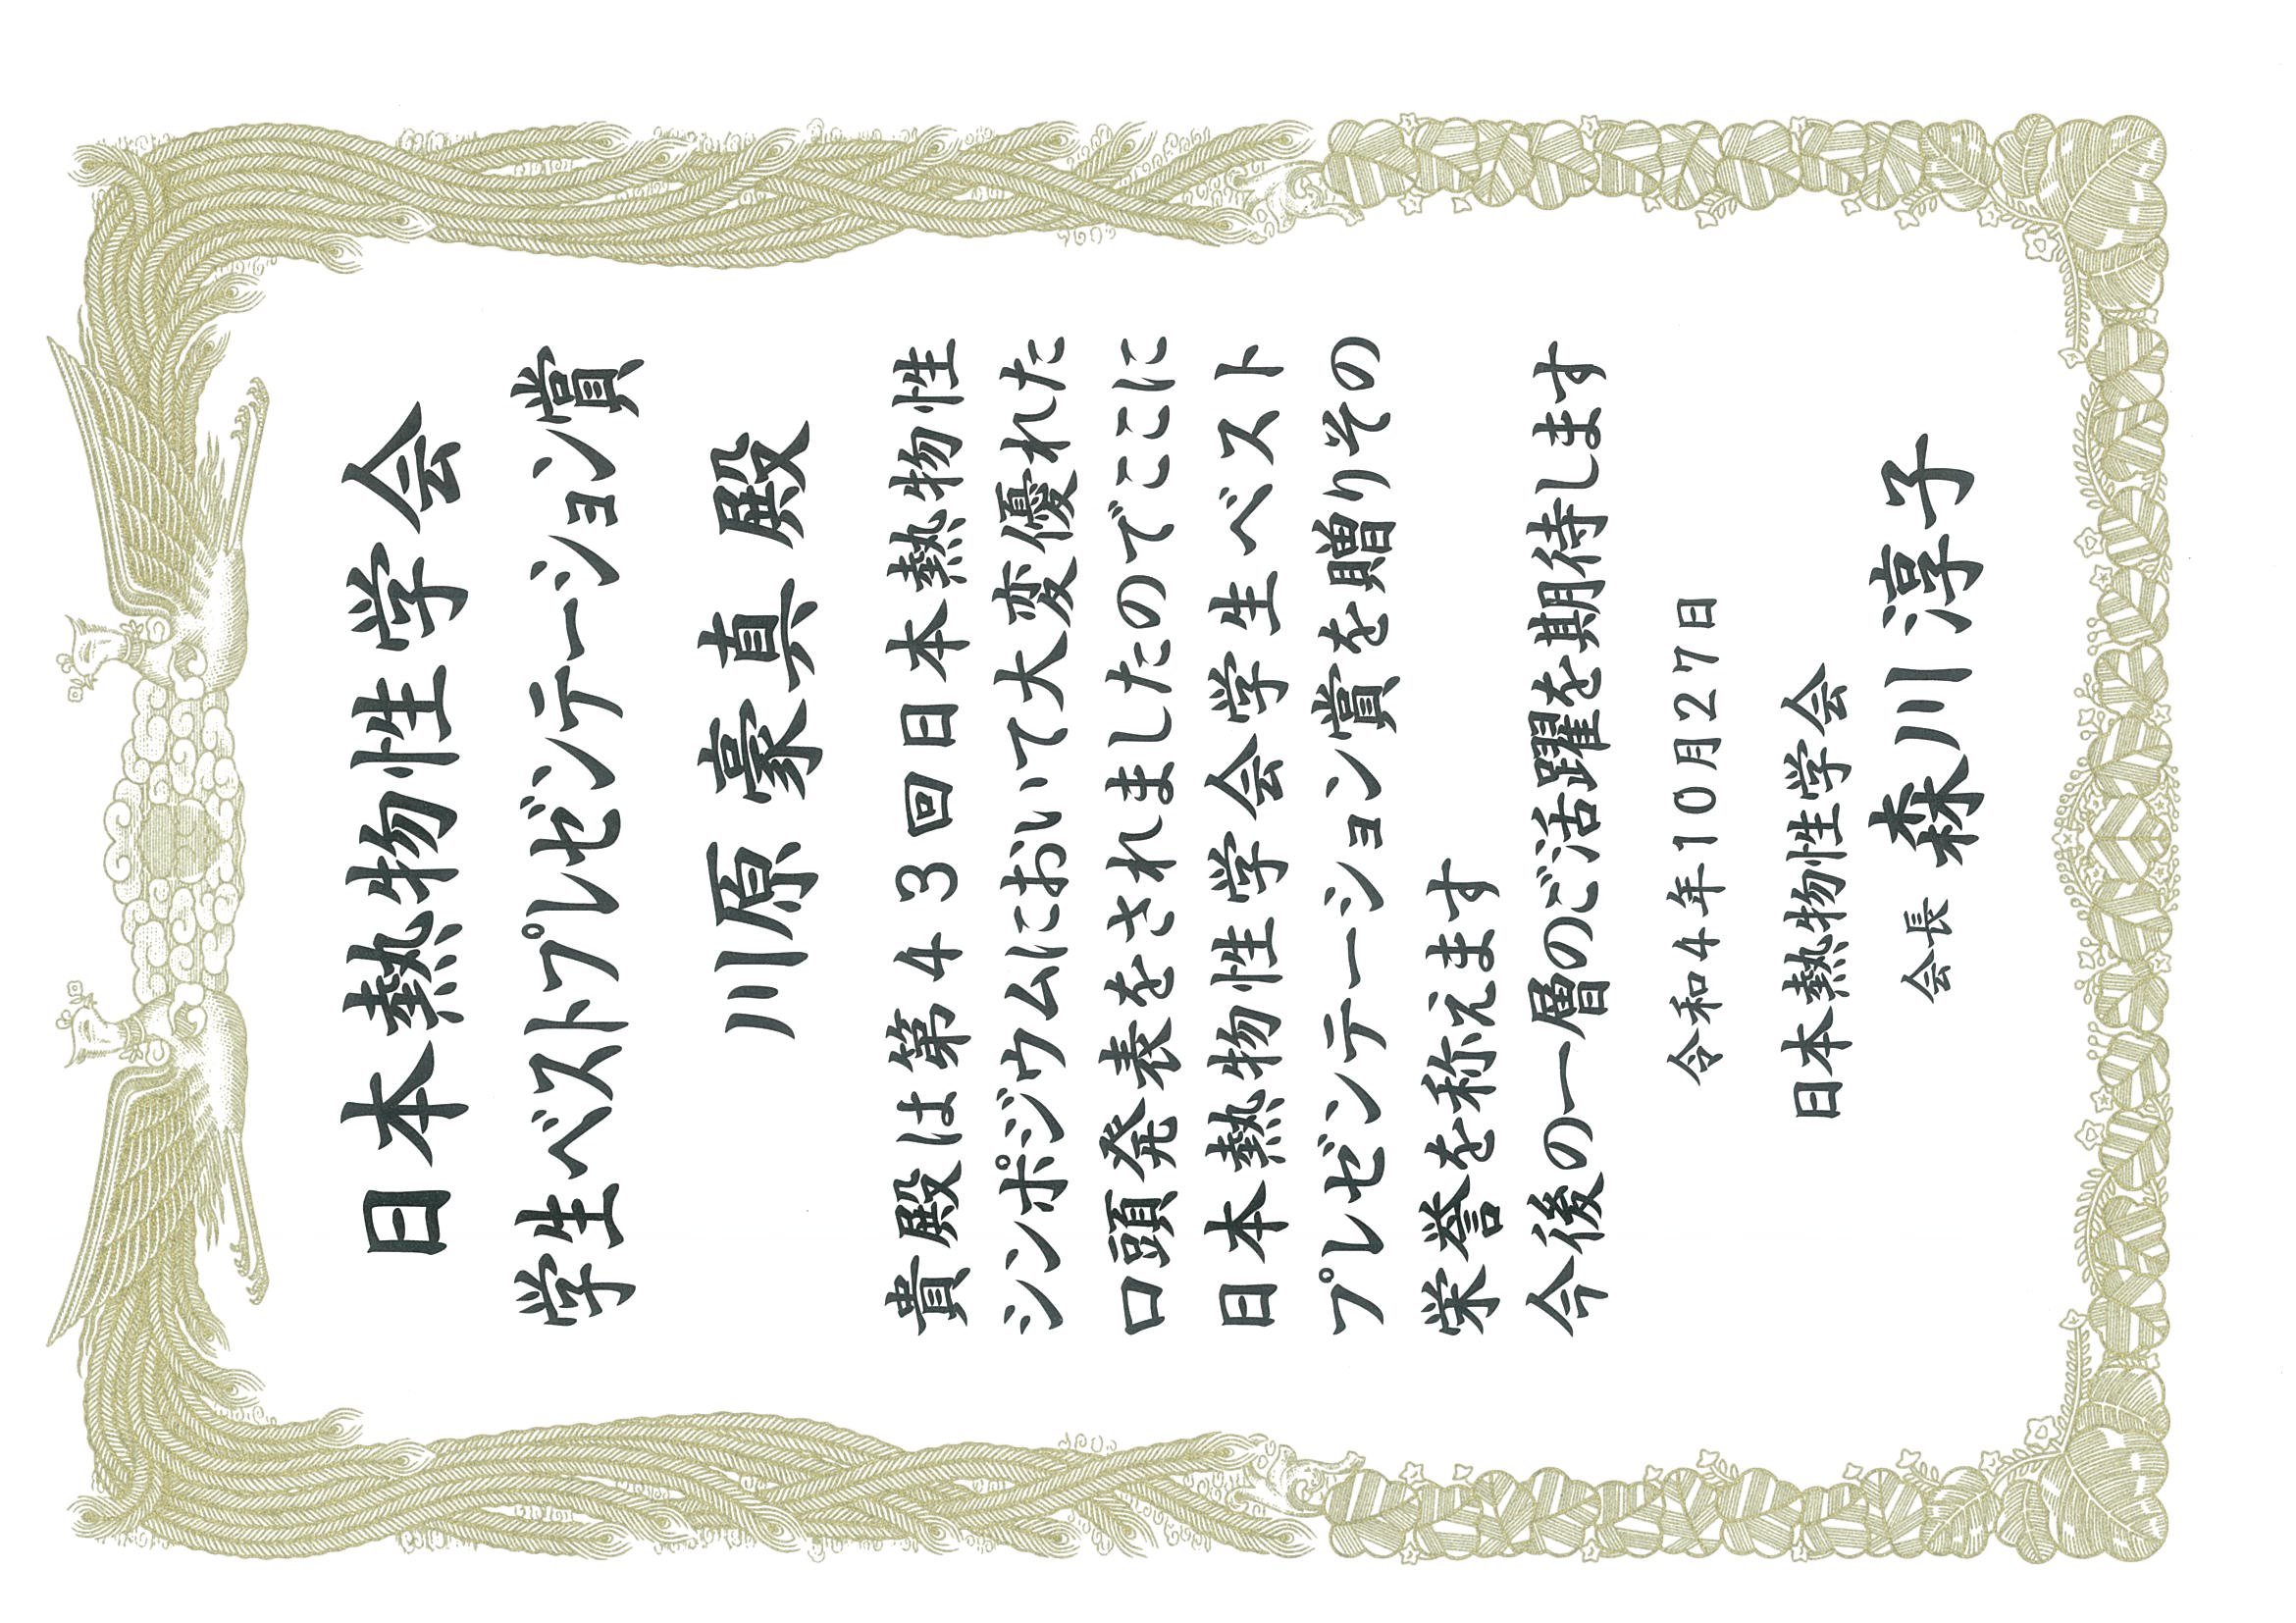 日本熱物性学会
学生ベストプレゼンテーション賞
川原 豪真 殿
貴殿は第43回日本熱物性
シンポジウムにおいて大変優れた
口頭発表をされましたのでここに
日本熱物性学会学生ベスト
プレゼンテーション賞を贈りその
栄誉を称えます
今後の一層のご活躍を期待します
令和4年10月27日
日本熱物性学会
会長 森川淳子